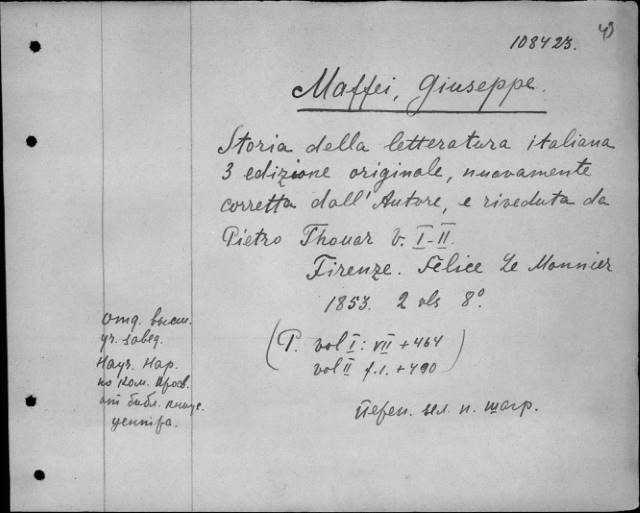 43
108423.
Maffei, Giuseppe.
Storia della letteratura italiana
3 edizione originale, nuovamente
corretta dall'Autore, e riveduta da
Pietro Thouar V. I-II.
Firenze. Felice Le Monnier
1853. 2 vls 8°.
(P. vol I: VII + 464
vol II f.l. + 490)
отд. высш.
уч. завед.
Науч. Нар.
ко ком. Прос.
от библ. книус.
центра.
перепл. зел. п. шагр.